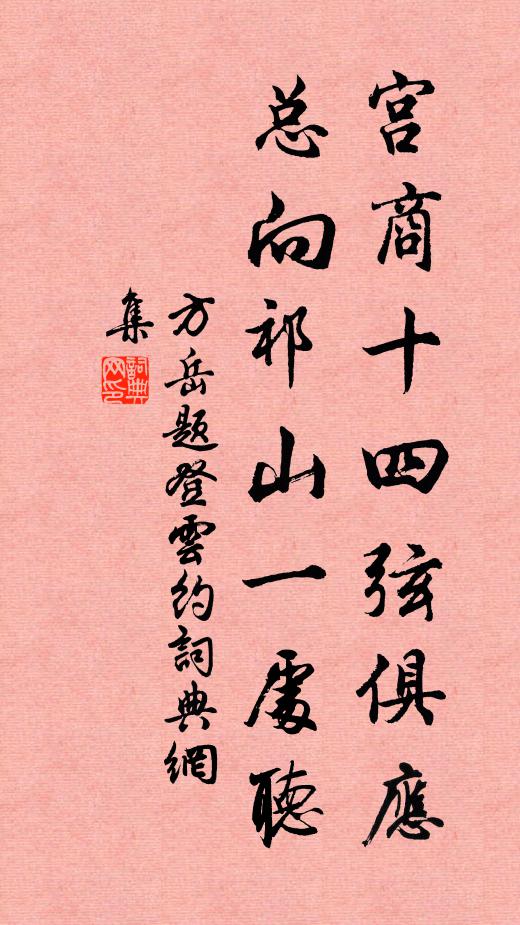 宫商十四弦俱應
总向祁山一處聽
方岳题登雲约詞典網
集
詞典
网印